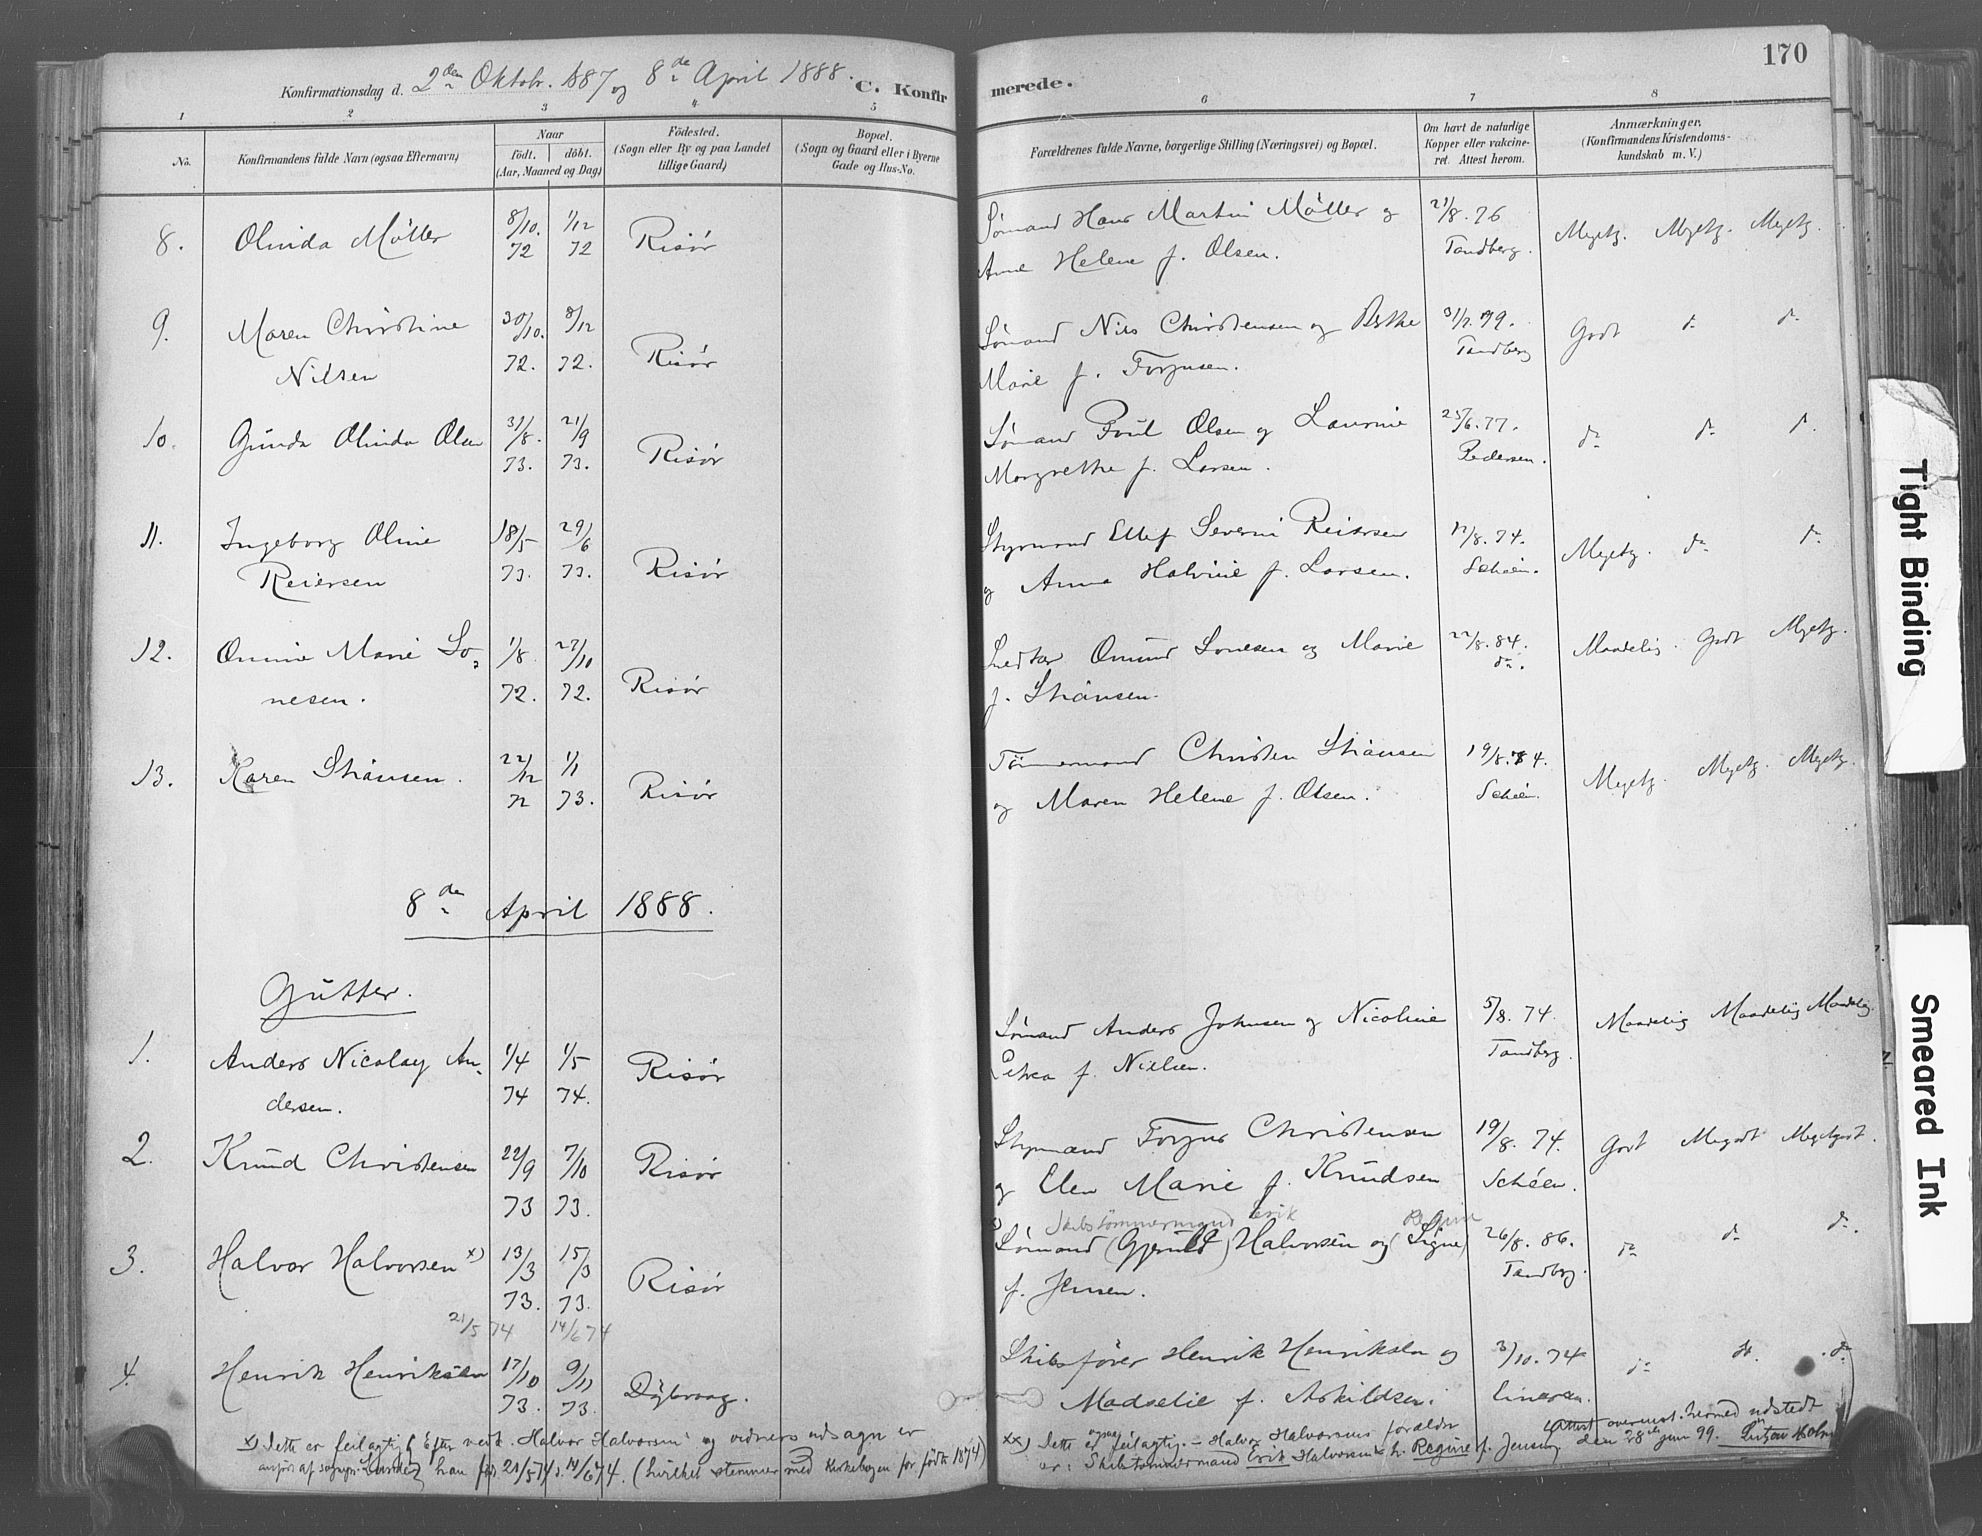 170
Konfirmationsdag d. 2den Oktobr. 1887 og 8de April 1888.
C. Konfirmerede.
1 2 3 4 5 6 7 8
No.
Konfirmandens fulde Navn (ogsaa Efternavn)
Naar
födt. döbt.
(Aar, Maaned og Dag)
Födested.
(Sogn eller By og paa Landet
tillige Gaard)
Bopæl.
(Sogn og Gaard eller i Byerne
Gade og Hus-No.
Forældrenes fulde Navne, borgerlige Stilling (Næringsvei) og Bopæl.
Om havt de naturlige
Kopper eller vakcine-
ret. Attest herom.
Anmærkninger.
(Konfirmandens Kristendoms-
kundskab m. V.)
8. Olinda Möller 8/10. 72 1/12 72 Risör Sömand Hans Martin Möller og 21/8. 76 Megetg. Megetg. Megetg.
Anne Helene f. Olsen. Tandberg.
9. Maren Christine 30/10. 72. 8/12 72. Risör Sömand Nils Christensen og Berthe 31/7. 79. Godt do do
Nilsen Marie f. Torjusen. Tandberg
10. Gunda Olinda Olsen 31/8. 73. 21/9 73. Risör Sömand Poul Olsen og Laurine 25/6. 77. do do do
Margrethe f. Larsen. Pedersen.
11. Ingeborg Oline 18/5 73. 29/6 73. Risör Styrmand Ellef Severin Reiersen 12/8. 74. Megetg. do do
Reiersen og Anna Halvine f. Larsen. Schéen.
12. Omine Marie Lo- 1/8. 72. 27/10 72. Risör Snedker Omund Lonesen og Marie 22/8. 84. Maadelig. Godt Megetg.
nesen. f. Stiansen. do.
13. Karen Stiansen. 22/12 72 1/1 73. Risör Tömmermand Christen Stiansen 19/8. 74. Megetg. Megetg. Megetg.
og Maren Helene f. Olsen. Schéen.
8de April 1888.
Gutter.
1. Anders Nicolay An- 1/4 74 1/5 74. Risör Sömand Anders Johnsen og Nicoline 5/8. 74. Maadelig Maadelig Maadelig.
dersen. Petrea f. Nielsen. Tandberg.
2. Knud Christensen 22/9 73 7/10 73. Risör Styrmand Torjus Christensen 19/8. 74. Godt Megodt Megetgodt.
og Elen Marie f. Knudsen Schéen.
Skibstömmermand Erik Regine
3. Halvor Halvorsen x) 13/3 73. 15/3 73. Risör Sömand (Gjeruld) Halvorsen og (Signe) 26/8. 86. do do do.
f. Jensen. Tandberg.
21/5 74 14/6 74
4. Henrik Henriksen 17/10 73. 9/11 73. Dybvaag. Skibsförer Henrik Henriksen og 3/10. 74 do do do
Madselie f. Askildsen. Einersen.
x) Dette er feilagtig Efter nævnte Halvor Halvorsens og vidners udsagn er
han född 21/5 74 14/6 74. (hvilket stemmer med Kirkebogen for födte 1874)
xx) Dette er ogsaa feilagtig. - Halvor Halvorsens forældre
er: Skibstömmermand Erik Halvorsen & h. Regine f. Jensen
Attest overenst. hermed udstedt
den 28de Juni 99.
Tight Binding
Smeared Ink